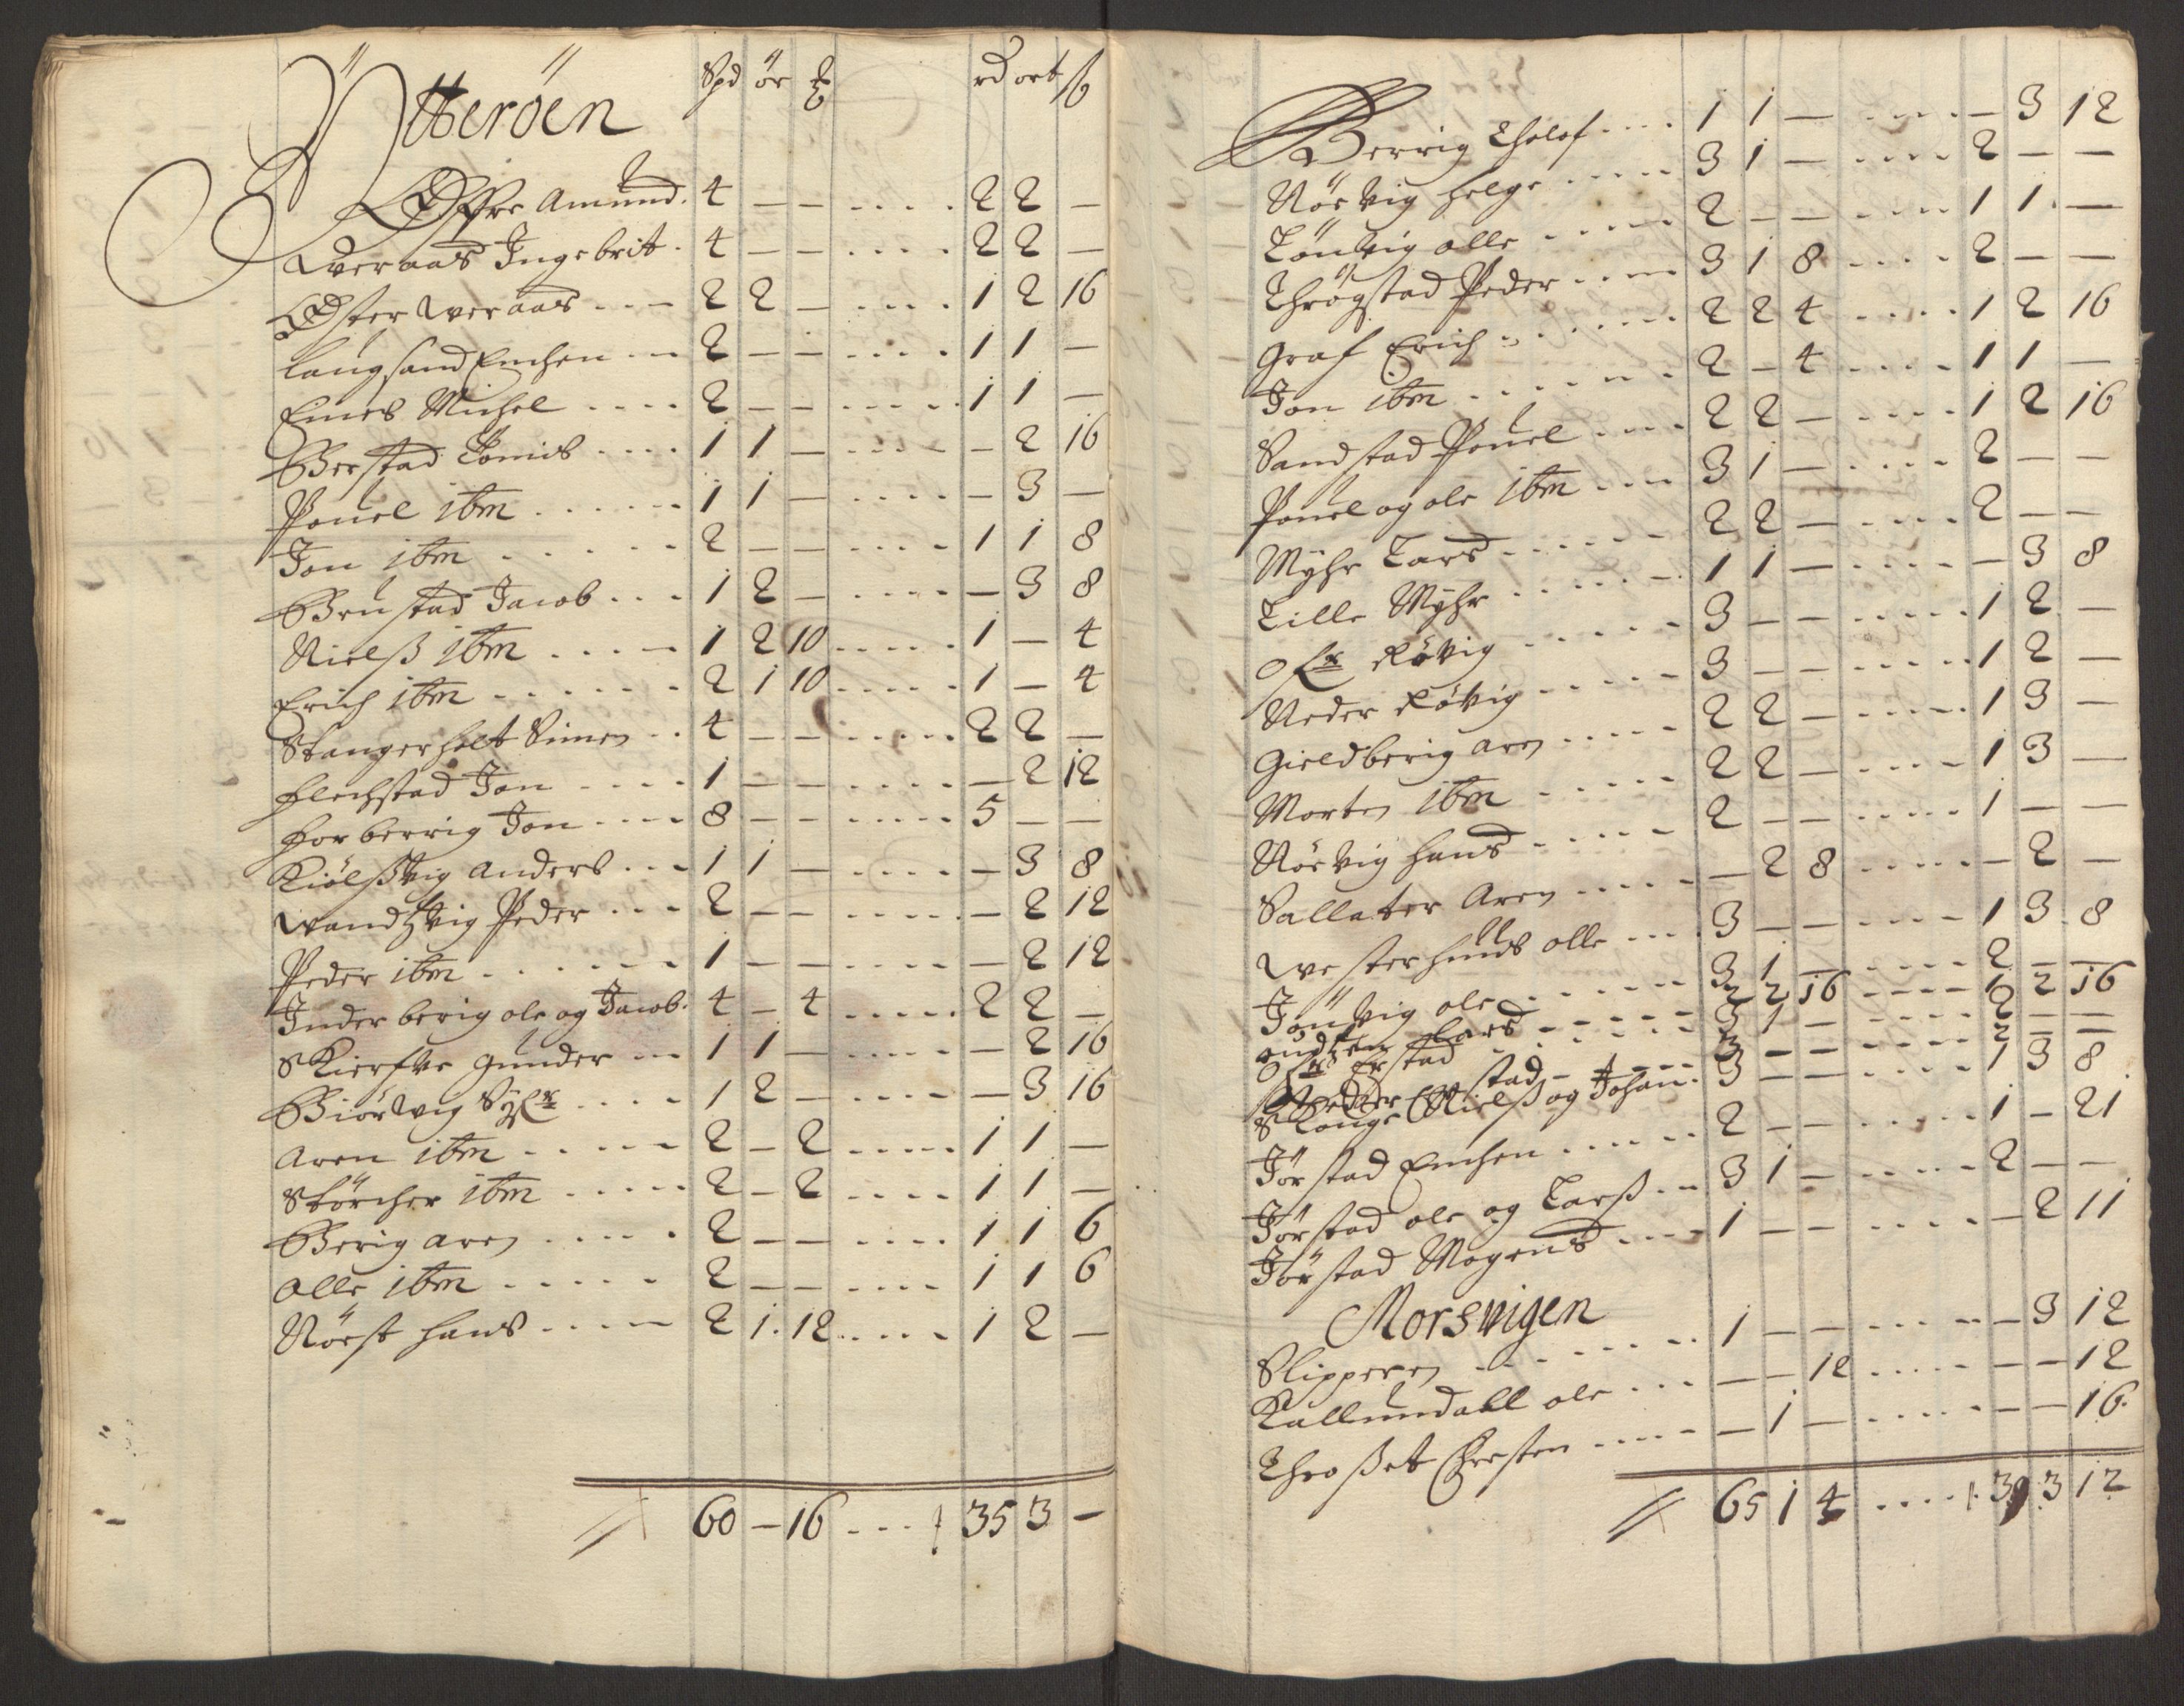 Ÿtteröen Spd ör rd ort ß
Øffre Amund. 4 — — .... 2 2 —
Qveraas Ingebrit. 4 — — .... 2 2 —
Øster Qveraas ... 2 2 — .... 1 2 16
Langsand Enchen ... 2 — — .... 1 1 —
Eines Michel .... 2 — — .... 1 1 —
Berstad Tomis .... 1 1 — .... — 2 16
Pouel ibm ...... 1 1 — .... — 3 —
Jon ibm ...... 2 — — .... 1 1 8
Brustad Jacob ... 1 2 — .... — 3 8
Nielß ibm .... 1 2 10 ..... 1 — 4
Erich ibm ...... 2 1 10 ..... 1 — 4
Stangerholt Simen .. 4 — — ..... 2 2 —
Flechstad Jon .... 1 — — .... — 2 12
Forberrig Jon .... 8 — — ..... 5 — —
Kiölßvig Anders ... 1 1 — ..... — 3 8
Wandtzvig Peder ... 2 — — ..... — 2 12
Peder ibm ...... 1 — — ..... — 2 12
Inderberig ole og Jacob. 4 — 4 ..... 2 2 —
Skierfve Gunder ... 1 1 — ..... — 2 16
Biörvig .... 1 2 — .... — 3 16
Aren ibm ..... 2 — 2 ..... 1 1 —
Störcher ibm ..... 2 — 2 .... 1 1 —
Berig Aren ..... 2 — — .... 1 1 6
Olle ibm ..... 2 — — .... 1 1 6
Nöest Hans .... 2 1. 12 ..... 1 2 —
60 — 16 ... 35 3 —
Berrig Tholof .... 1 1 — .... — 3 12
Nörvig Helge ..... 3 1 — .... 2 — —
Lönvig olle ..... 2 — — .... 1 1. —
Thrögstad Peder .... 3 1 8 .... 2 — —
Graf Erich ...... 2 2 4 .... 1 2 16
Jon ibm ...... 2 — 4 .... 1 1 —
Sandstad Pouel .... 2 2 — .... 1 2 16
Pouel og ole ibm ... 3 1 — .... 2 — —
Myhr Lars ...... 2 2 — .... 2 — —
Lille Myhr ...... 1 1 — ..... — 3 8
Rövig ...... 3 — — ..... 1 2 —
Neder Rövig ..... 3 — — ..... 1 2 —
Gieldberig Aren ..... 2 2 — ..... 1 3 —
Morten ibm ..... 2 2 — ..... 1 3 —
Nörvig Hans ..... 2 — — ..... 1 — —
Sallater Aren ..... — 2 8 ..... — 2 —
Westerhuus olle ... 3 — — .... 1 3 8
Jönvig ole ...... 3 1 — ..... 2 — —
Lars ...... 2 2 16 ..... 1 2 16
Erstad ..... 3 1 — ..... 2 — —
Neder stad ..... 3 — — ..... 2 — —
Skonge Nielß og Johan. 3 — — .... 1 3 8
Jörstad Enchen ...... 2 — — ..... 1 — 21
Jörstad ole og Larß ... 3 1 — ..... 2 — —
Jörstad Mogens .... 1 — — ..... — 2 11
Morsvigen
Slipperen ....... 1 — — ..... — 3 12
Kallundall ole ... — — 12 ..... — — 12
Throßet Christen ..... — 1 — ..... — — 16.
65 1 4 .... 39 3 12